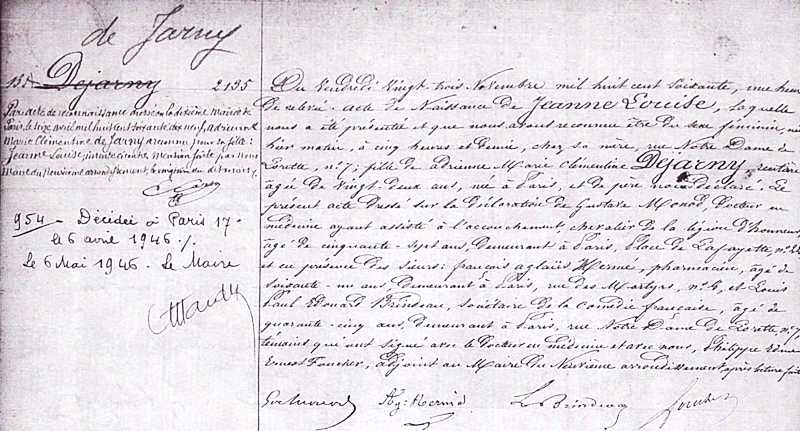 de Jarny
Dejarny 2135
Par acte de reconnaissance dressé en la dixième mairie de
Paris le seize avril mil huit cent soixante dix neuf, Adrienne
Marie Clémentine de Jarny a reconnu pour sa fille :
Jeanne Louise, inscrite ci contre. Mention faite par nous
Maire du neuvième arrondissement, le vingt un du dit mois
954 – Décédée à Paris 17e
le 6 avril 1946 /.
Le 6 Mai 1946. Le Maire
Du Vendredi vingt trois Novembre mil huit cent soixante, une heure
de relevée. acte de Naissance de Jeanne Louise, laquelle
nous a été présentée et que nous avons reconnue être du sexe féminin, née
hier matin, à cinq heures et demie, chez sa mère, rue Notre Dame de
Lorette, n° 7 ; fille de adrienne Marie Clémentine Dejarny, rentière
agée de vingt-deux ans, née à Paris, et de père non déclaré. Le
présent acte dressé sur la déclaration de Gustave Monod, Docteur en
médecine ayant assisté à l'accouchement, chevalier de la légion d'honneur,
âgé de cinquante-sept ans, demeurant à Paris, Place de Lafayette n°
et en présence des sieurs : françois aglaüs Hernu, pharmacien, âgé de
soixante-un ans, demeurant à Paris, rue des Martyrs, n° 6, et Louis
Paul Edouard Brindeau, sociétaire de la comédie française, âgé de
quarante-cinq ans, demeurant à Paris, rue Notre Dame de Lorette n° 7,
témoins qui ont signé avec le Docteur en médecine et avec nous, Philippe
Ernest Foucher, adjoint au Maire du Neuvième arrondissement après lecture faite
L. Brindeau Foucher